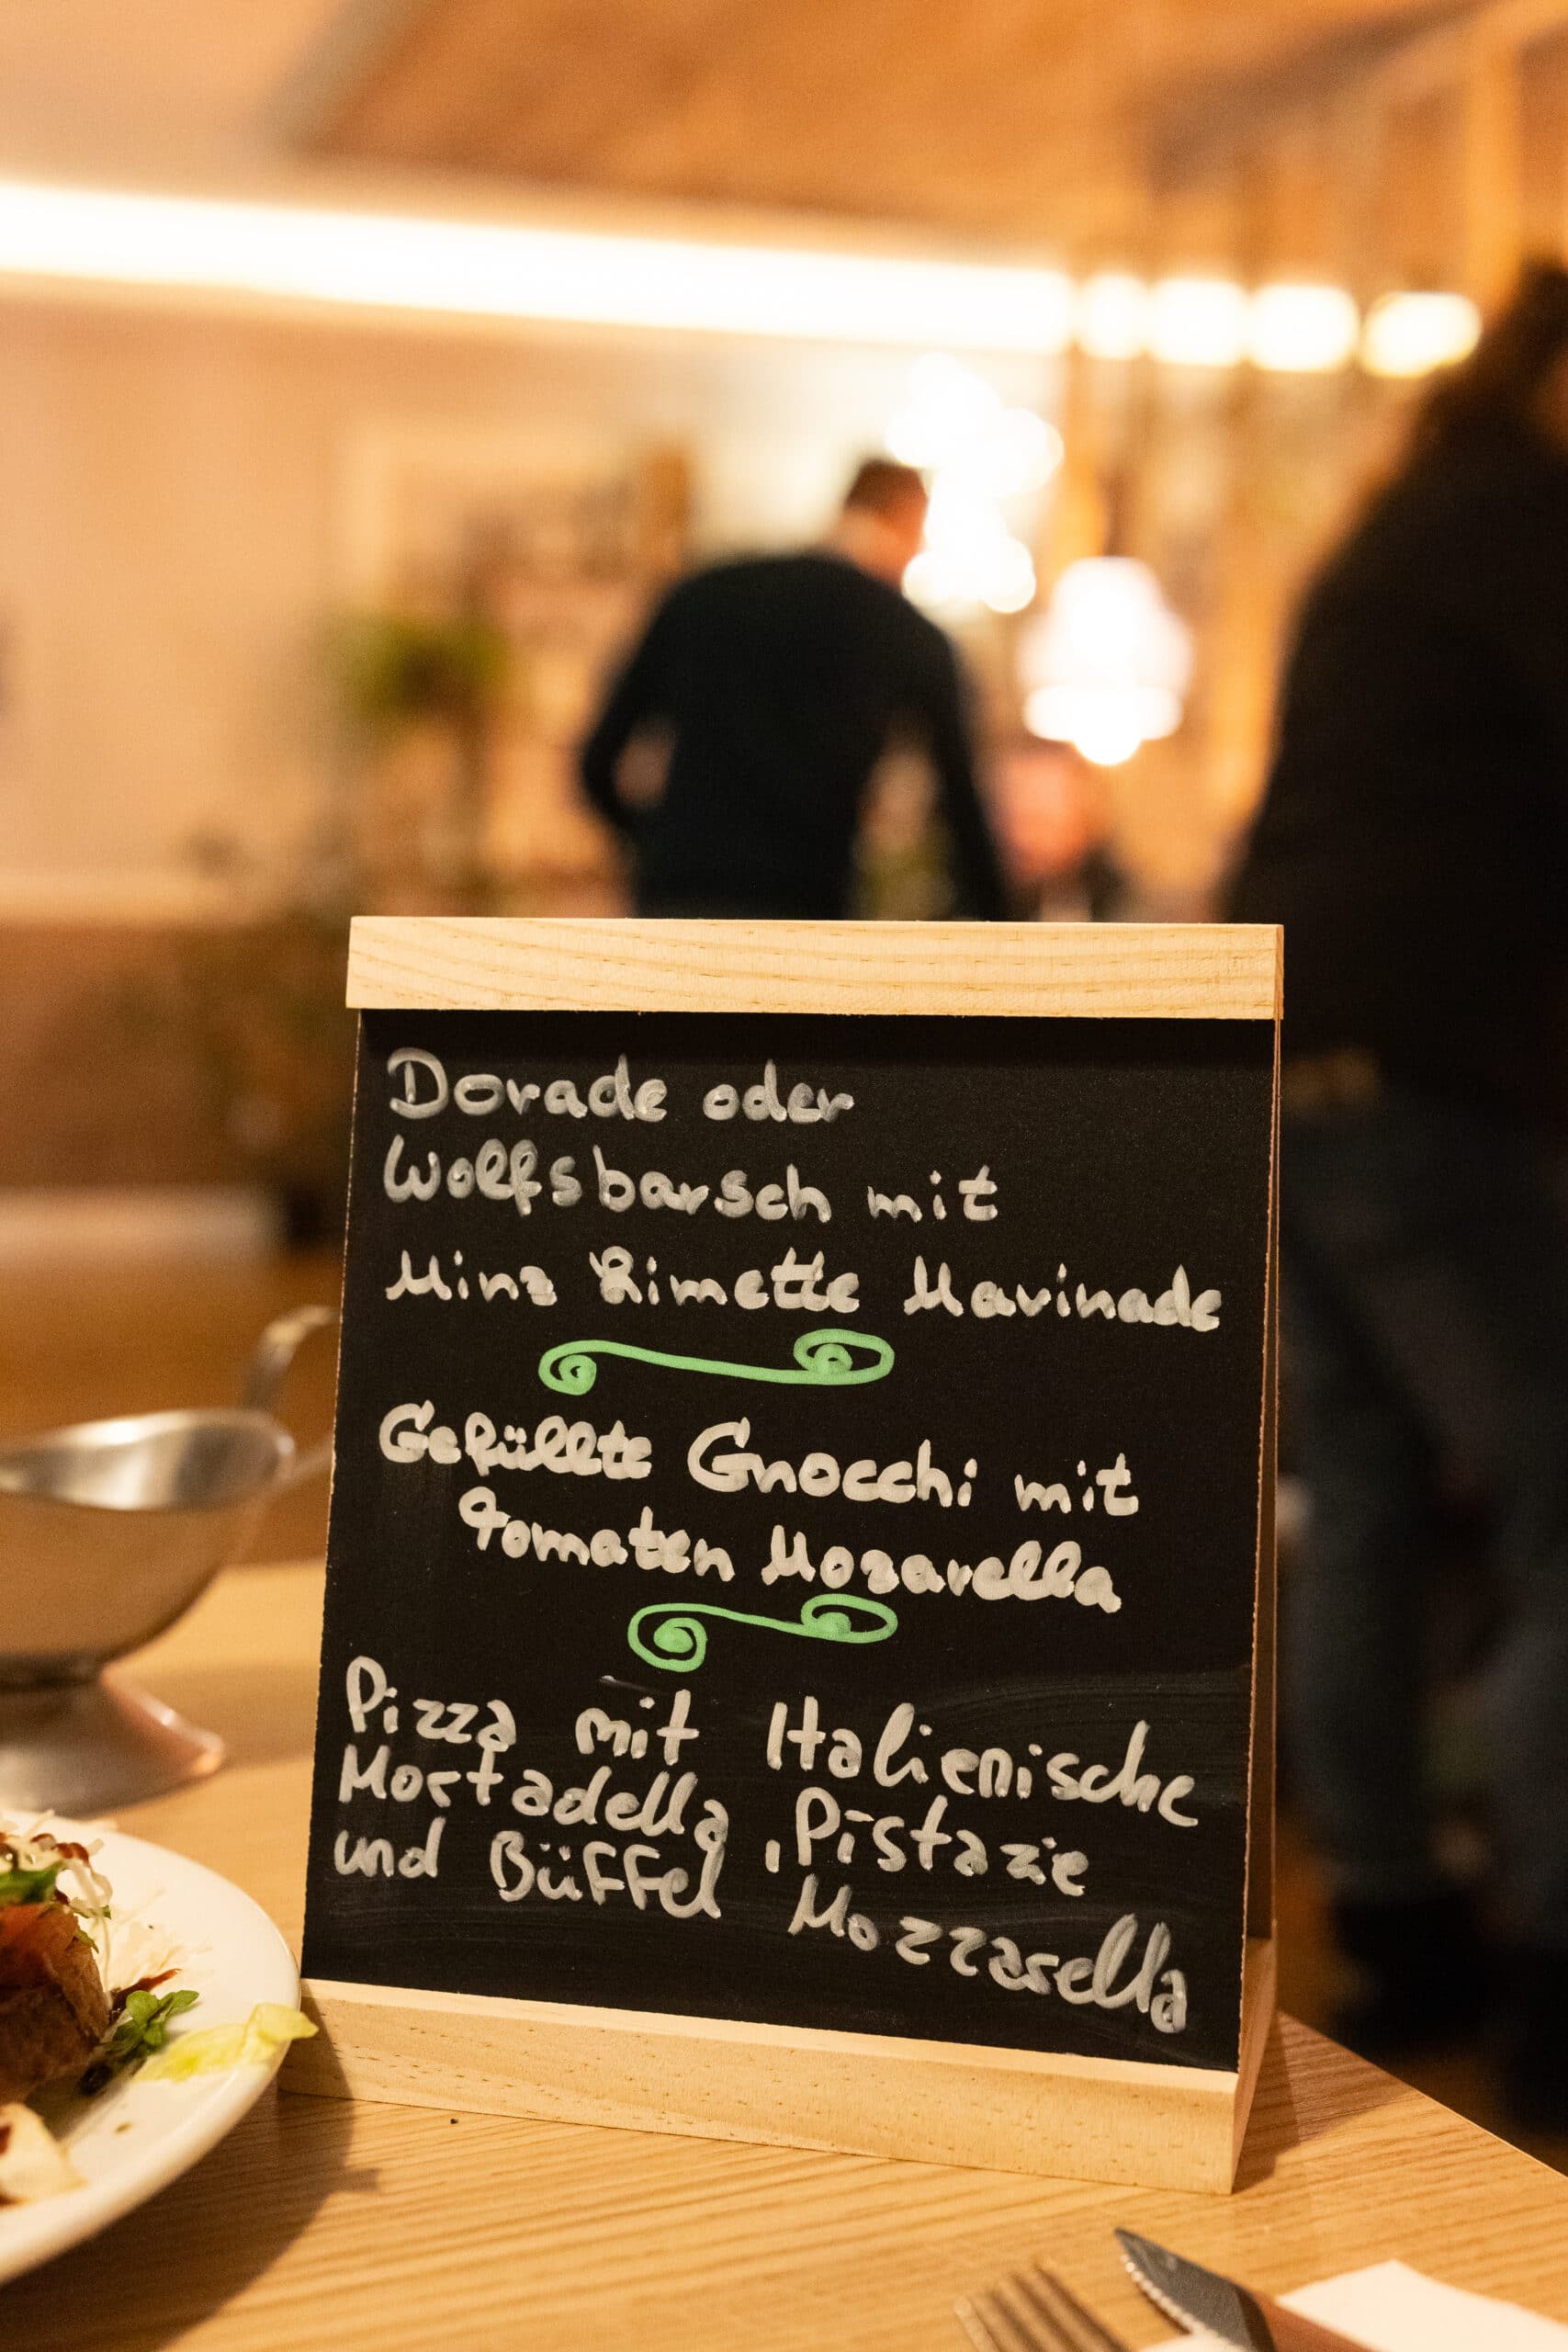 Dorade oder
Wolfsbarsch mit
Minz Limette Marinade
Gefüllte Gnocchi mit
Tomaten Mozarella
Pizza mit Italienische
Mortadella, Pistazie
und Büffel Mozzarella